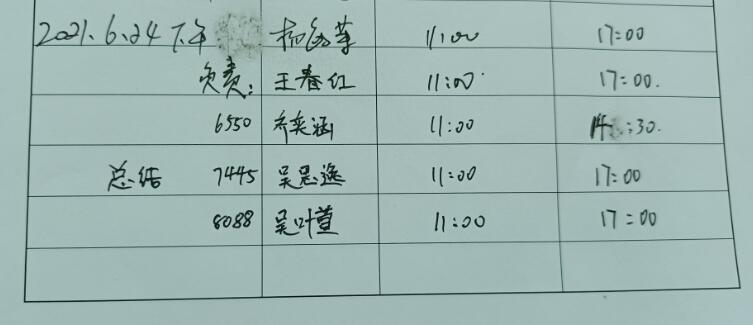 2021.6.24 下午 杨 11:00 17:00
负责: 王春红 11:00 17:00.
6550 乔奕涵 11:00 14:30.
总结 7445 吴思逸 11:00 17:00
8088 吴叶萱 11:00 17:00